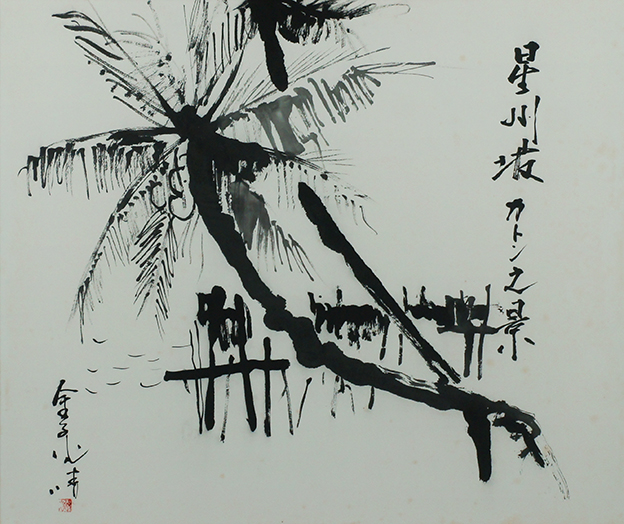 星川坡カトン之景
金子光晴